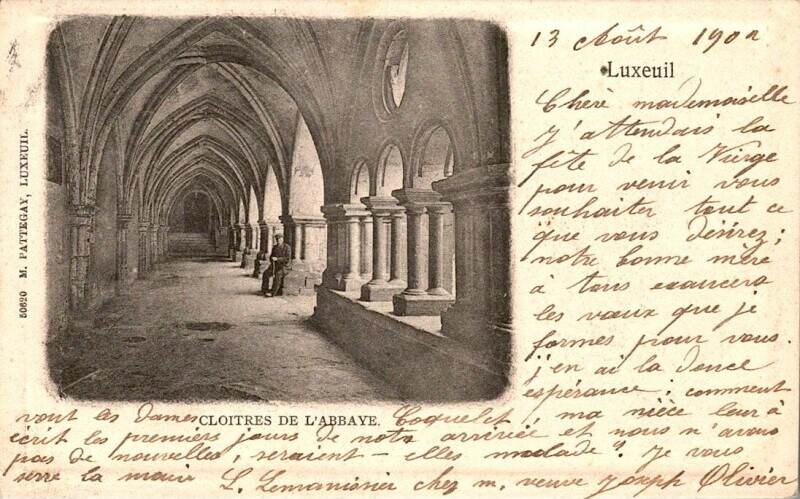 13 Août 190
Luxeuil
Chère mademoiselle
J'attendais la
fête de la Vierge
pour venir vous
souhaiter tout ce
que vous desirez;
notre bonne mère
à tous exaucera
les vœux que je
formes pour vous.
j'en ai la douce
espérance; comment
vont les dames Coquelet, ma nièce leur à
écrit les premiers jours de notre arrivée et nous n'avons
pas de nouvelles, seraient-elles malade? Je vous
serre la main L. Lemanissier chez m. veuve Joseph Olivier
CLOITRES DE L'ABBAYE.
50620 M. PATTEGAY, LUXEUIL.